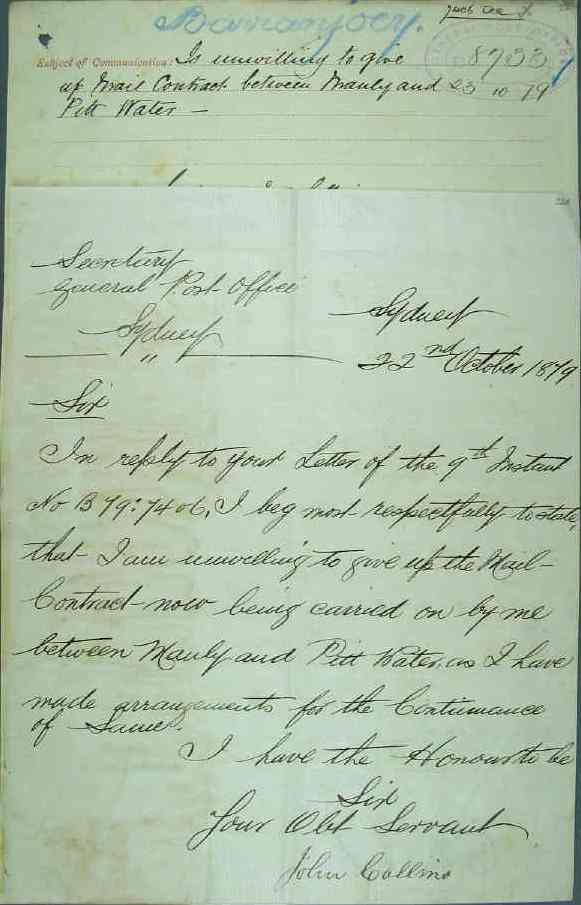 Barranjoey.
Subject of Communication: Is unwilling to give
up Mail Contract between Manly and
Pitt Water —
8733
23 10 79
Secretary
General Post Office
Sydney
Sydney
22nd October 1879
Sir
In reply to your Letter of the 9th Instant
No B 79:7406, I beg most respectfully to state,
that I am unwilling to give up the Mail-
Contract now being carried on by me
between Manly and Pitt Water. as I have
made arrangements for the Continuance
of Same.
I have the Honour to be
Sir
Your Obt Servant
John Collins